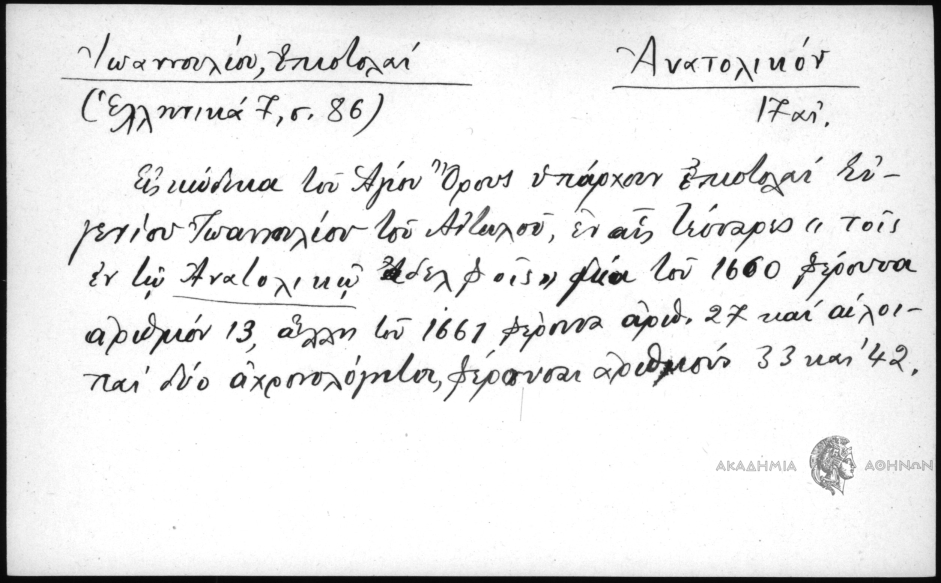 Ἰωαννουλίου, Ἐπιστολαί
Ἀνατολικόν
(Ἑλληνικά 7, σ. 86)
17 αἰ.
Εἰς κώδικα τοῦ Ἁγίου Ὄρους ὑπάρχουν ἐπιστολαί Εὐ-
γενίου Ἰωαννουλίου τοῦ Αἰτωλοῦ, ἐν αἷς τέσσαρες « τοῖς
ἐν τῷ Ἀνατολικῷ ἀδελφοῖς» μία τοῦ 1660 φέρουσα
ἀριθμόν 13, ἄλλη τοῦ 1661 φέρουσα ἀριθ. 27 καί αἱ λοι-
παί δύο ἀχρονολόγητοι, φέρουσαι ἀριθμούς 33 καί 42.
ΑΚΑΔΗΜΙΑ ΑΘΗΝΩΝ